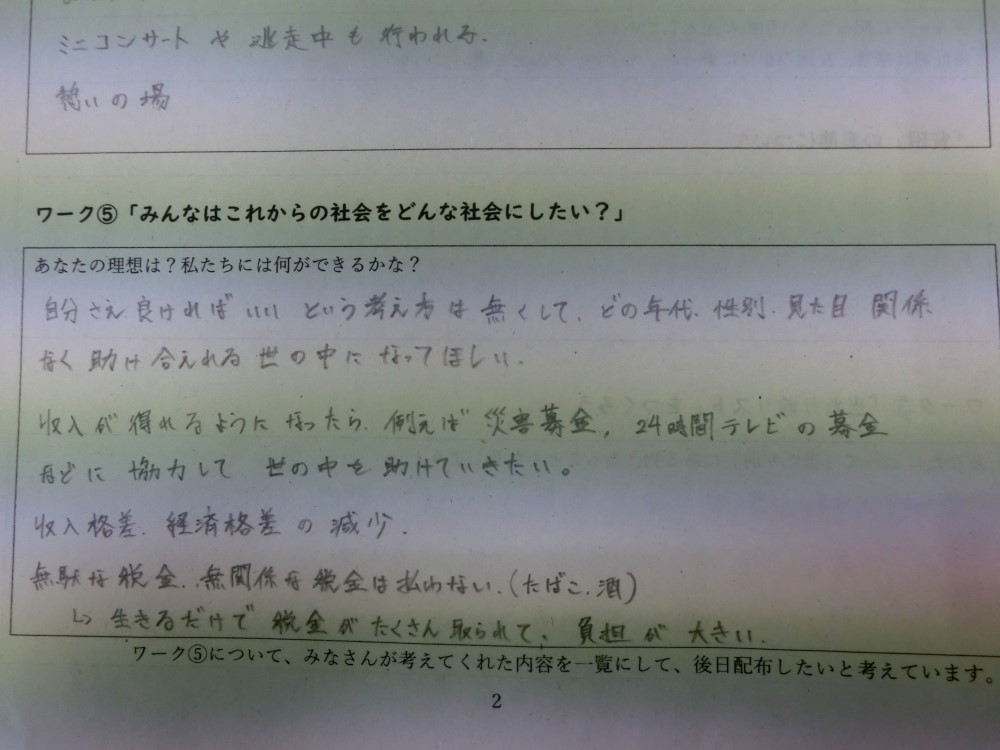 ミニコンサートや逃走中も行われる.
憩いの場
ワーク⑤「みんなはこれからの社会をどんな社会にしたい？」
あなたの理想は？私たちには何ができるかな？
自分さえ良ければいいという考え方は無くして、どの年代、性別、見た目 関係
なく助け合えれる世の中になってほしい.
収入が得れるようになったら、例えば災害募金, 24時間テレビの募金
などに協力して 世の中を助けていきたい。
収入格差、経済格差の減少.
無駄な税金、無関係な税金は払わない.(たばこ、酒)
↳ 生きるだけで税金がたくさん取られて、負担が大きい.
ワーク⑤について、みなさんが考えてくれた内容を一覧にして、後日配布したいと考えています。
2